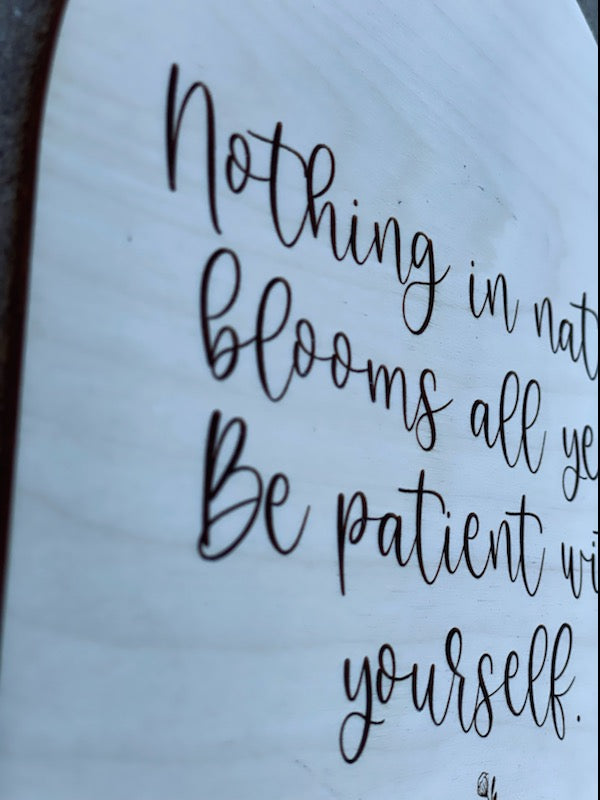 Nothing in nat
blooms all ye
Be patient wi
yourself.